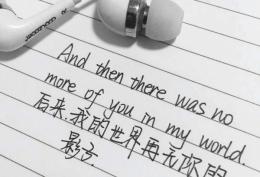 And then there was no
more of you in my world.
后来.我的世界再无你的
影子.